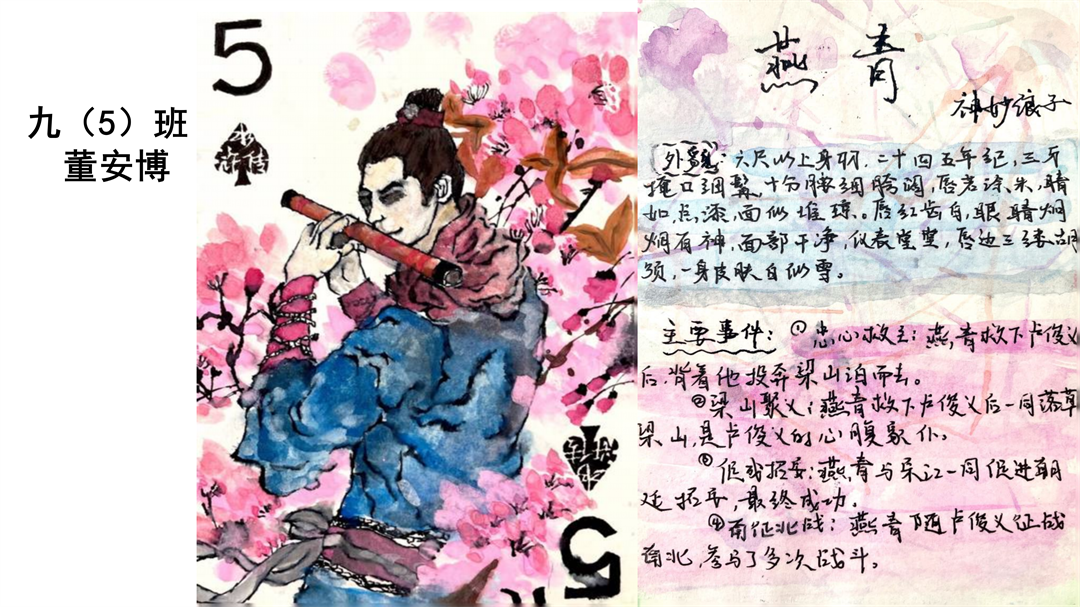 九（5）班
董安博
5
水
浒传
水
浒传
5
燕 青
神妙浪子
外貌：六尺以上身材，二十四五年纪，三牙
掩口细髯，十分腰细膀阔，唇若涂朱，睛
如点漆，面似堆琼。唇红齿白，眼睛炯
炯有神，面部干净，仪表堂堂，唇边三缕胡
须，一身皮肤白似雪。
主要事件：①忠心救主：燕青救下卢俊义
后，背着他投奔梁山泊而去。
②梁山聚义：燕青救下卢俊义后一同落草
梁山，是卢俊义的心腹家仆。
③促成招安：燕青与宋江一同促进朝
廷招安，最终成功。
④南征北战：燕青下随卢俊义征战
南北，参与了多次战斗。